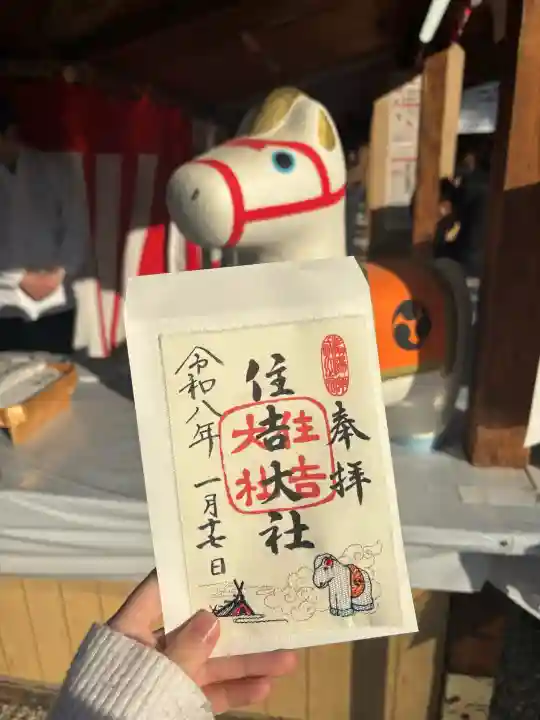 奉拝
住吉大社
住吉大社
令和八年
一月十七日